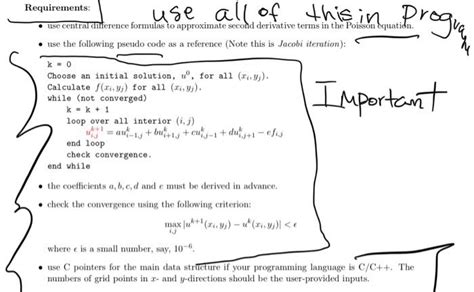 Requirements:
use all of this in Program
• use central difference formulas to approximate second derivative terms in the Poisson equation.
• use the following pseudo code as a reference (Note this is Jacobi iteration):
Important
k = 0
Choose an initial solution, u⁰, for all (xᵢ, yⱼ).
Calculate f(xᵢ, yⱼ) for all (xᵢ, yⱼ).
while (not converged)
k = k + 1
loop over all interior (i, j)
u^{k+1}_{i,j} = au^k_{i−1,j} + bu^k_{i+1,j} + cu^k_{i,j−1} + du^k_{i,j+1} − ef_{i,j}
end loop
check convergence.
end while
• the coefficients a, b, c, d and e must be derived in advance.
• check the convergence using the following criterion:
max_{i,j} |u^{k+1}(xᵢ, yⱼ) − u^k(xᵢ, yⱼ)| < ϵ
where ϵ is a small number, say, 10⁻⁶.
• use C pointers for the main data structure if your programming language is C/C++. The
numbers of grid points in x- and y-directions should be the user-provided inputs.